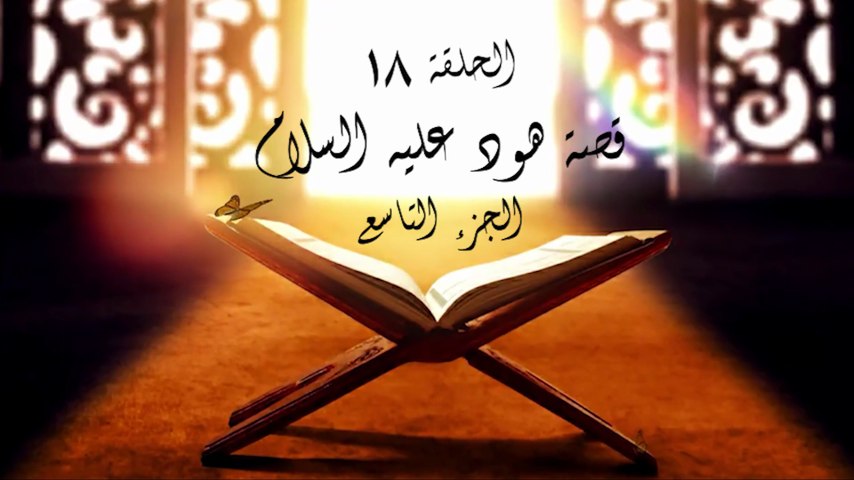 الحلقة ١٨
قصة هود عليه السلام
الجزء التاسع